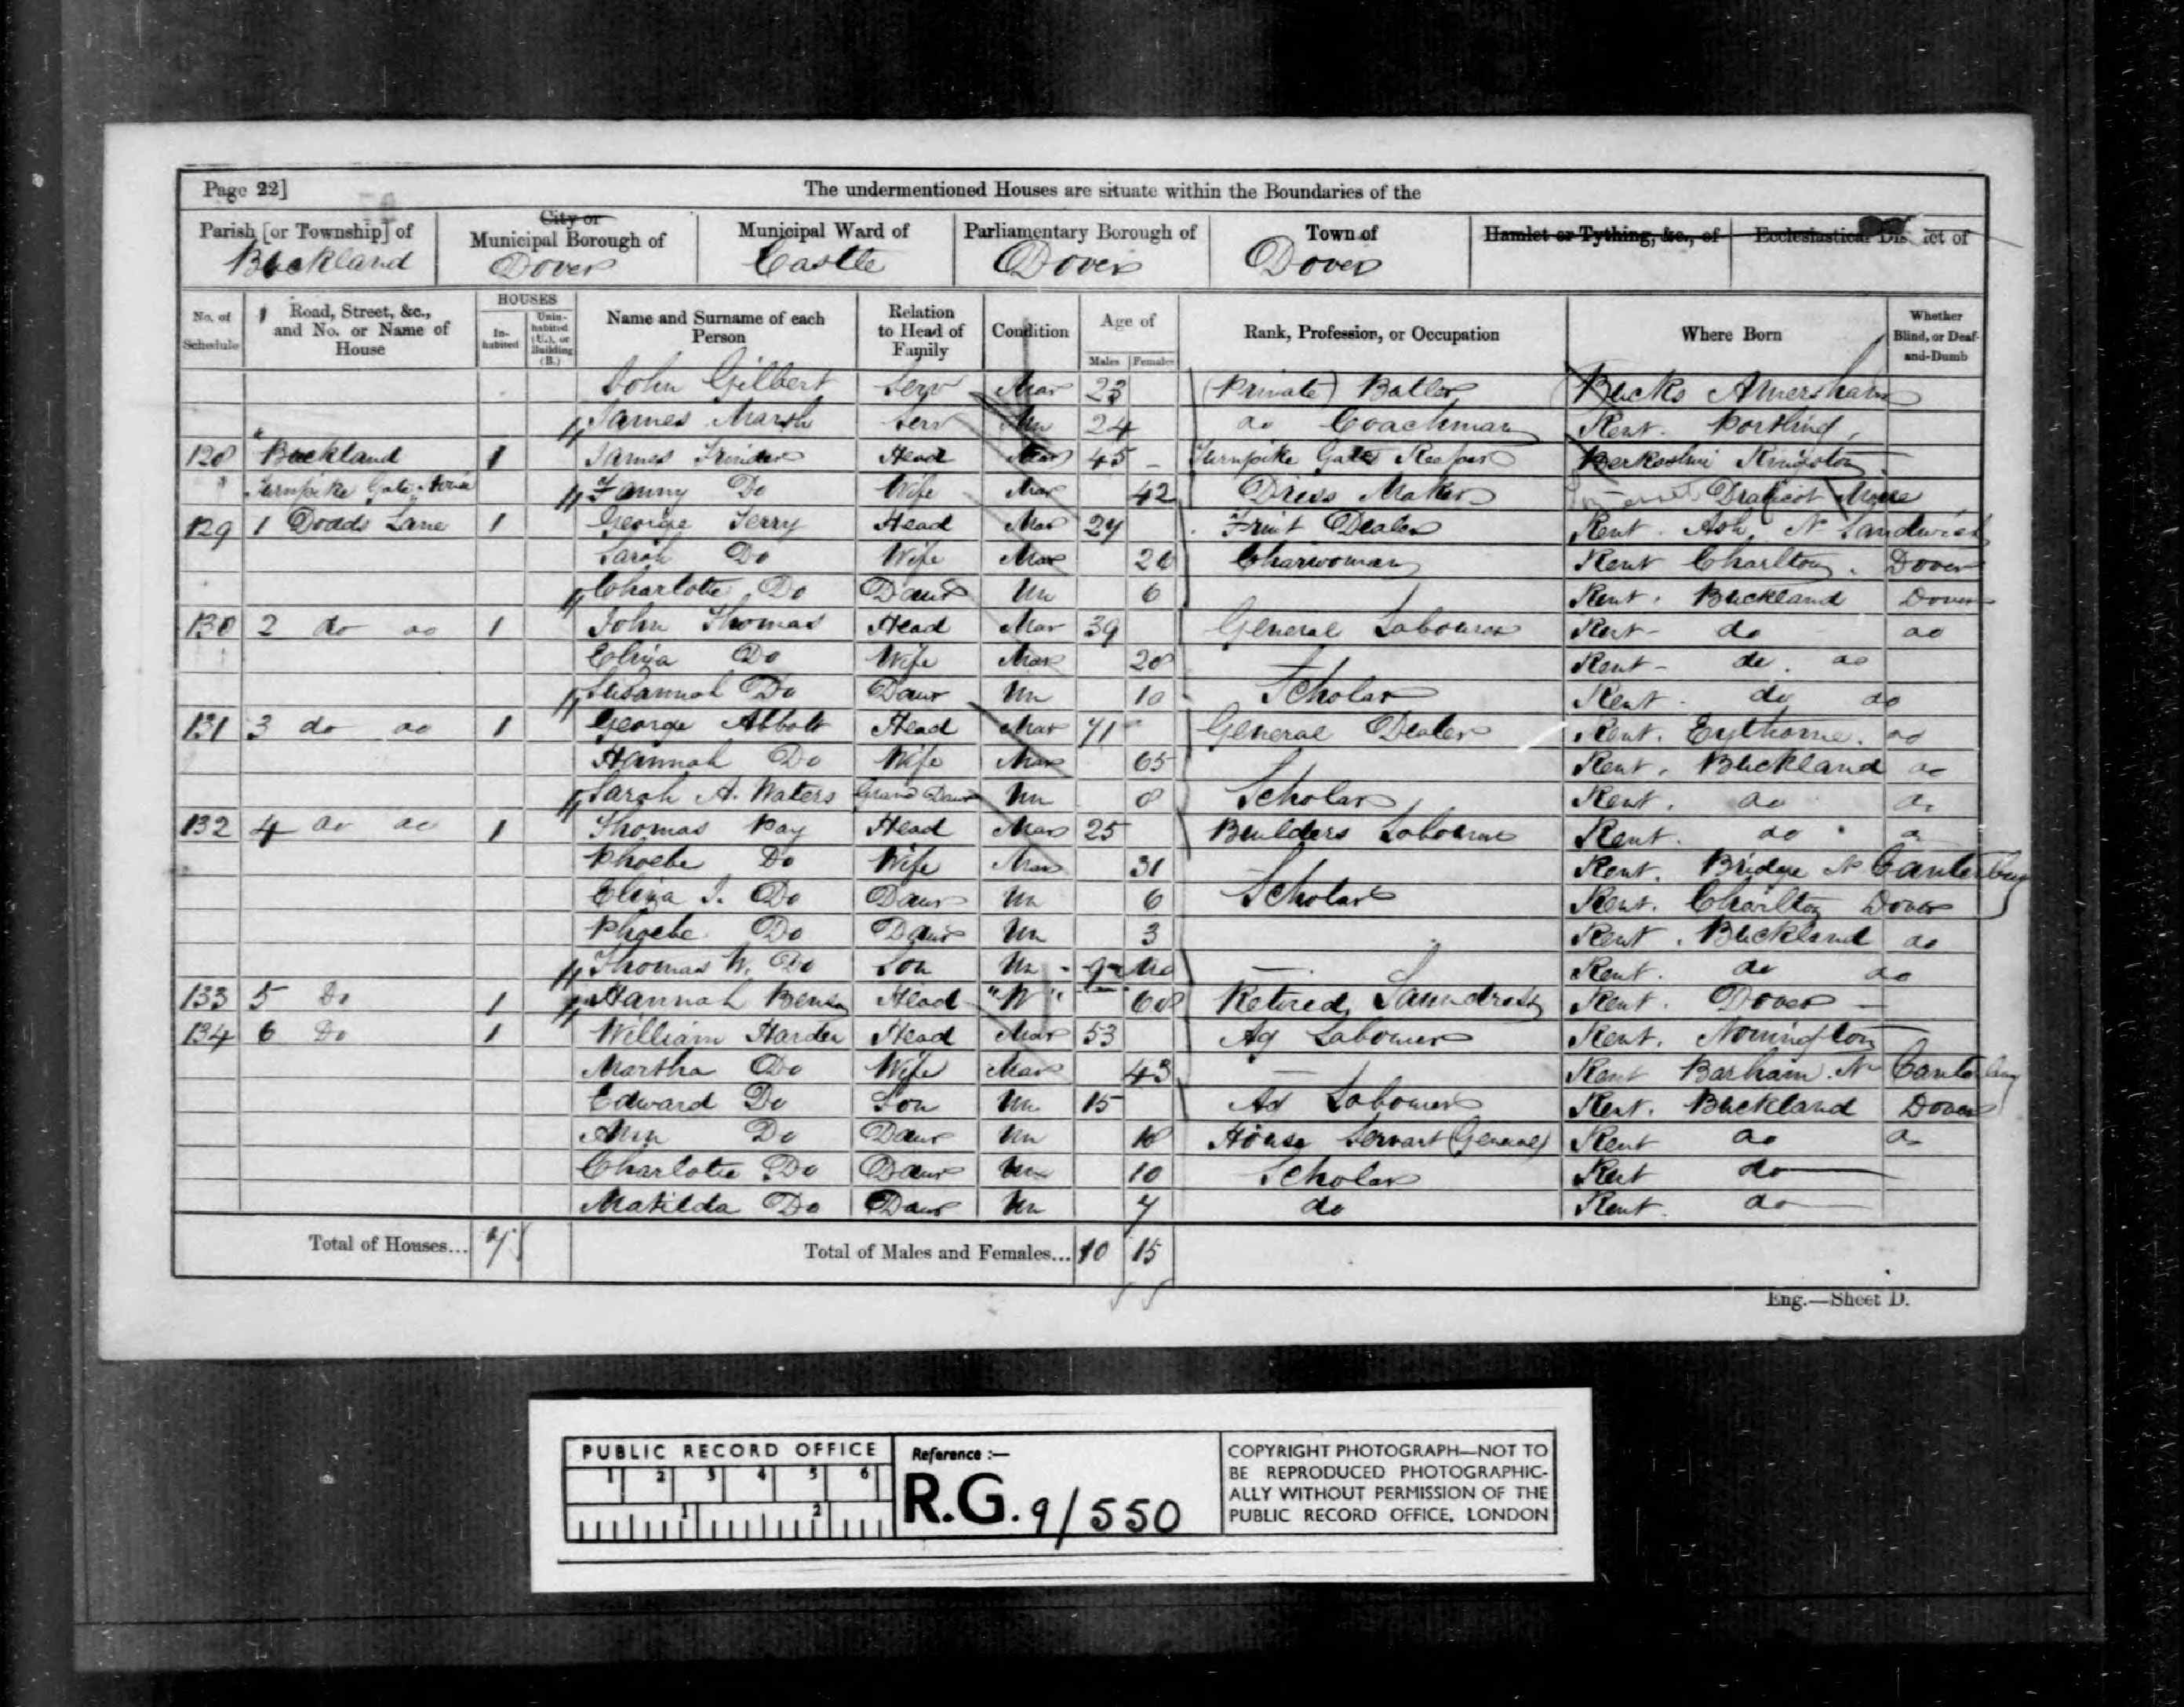 Page 22] The undermentioned Houses are situate within the Boundaries of the
Parish [or Township] of Buckland
City or Municipal Borough of Dover
Municipal Ward of Castle
Parliamentary Borough of Dover
Town of Dover
Hamlet or Tything, &c., of
Ecclesiastical District of
No. of Schedule
Road, Street, &c., and No. or Name of House
HOUSES
In-habited
Unin-habited (U.), or Building (B.)
Name and Surname of each Person
Relation to Head of Family
Condition
Age of
Males Females
Rank, Profession, or Occupation
Where Born
Whether Blind, or Deaf-and-Dumb
John Gilbert Serv Mar 23 (Private) Butler Bucks Amersham
James Marsh Serv Un 24 do Coachman Kent. Postling
128 Buckland 1 James Head Mar 45 Turnpike Gate Keeper Berkshire Kingston
Turnpike Gate Fanny Do Wife Mar 42 Dress Maker Somerset Draycot Moore
129 1 Dodds Lane 1 George Terry Head Mar 29 Fruit Dealer Kent. Ash Nr Sandwich
Sarah Do Wife Mar Charwoman Kent Charlton. Dover
Charlotte Do Daur Un 6 Kent. Buckland Dover
130 2 do do 1 John Thomas Head Mar 39 General Labourer Kent- do do
Eliza Do Wife Mar 28 Kent- do. do
Susannah Do Daur Un 10 Scholar Kent. do do
131 3 do do 1 George Abbott Head Mar 71 General Dealer Kent. Eythorne. do
Hannah Do Wife Mar 65 Kent. Buckland do
Sarah A. Waters Grand Daur Un 8 Scholar Kent. do do
132 4 do do 1 Thomas Pay Head Mar 25 Builders Labourer Kent. do do
Phoebe Do Wife Mar 31 Kent. Bridge Nr Canterbury
Eliza J. Do Daur Un 6 Scholar Kent. Charlton Dover
Phoebe Do Daur Un 3 Kent. Buckland do
Thomas W. Do Son Un 9 mo Kent. do do
133 5 Do 1 Hannah Head "W" 68 Retired Laundress Kent. Dover
134 6 Do 1 William Harden Head Mar 53 Ag Labourer Kent. Nonington
Martha Do Wife Mar 43 Kent Barham. Nr Canterbury
Edward Do Son Un 15 Ag Labourer Kent. Buckland Dover
Ann Do Daur Un 18 House Servant (General) Kent do do
Charlotte Do Daur Un 10 Scholar Kent do
Matilda Do Daur Un 7 do Kent. do
Total of Houses... 7 Total of Males and Females... 10 15
Eng.—Sheet D.
PUBLIC RECORD OFFICE
1 2 3 4 5 6
1 2
Reference :—
R.G. 9/550
COPYRIGHT PHOTOGRAPH—NOT TO
BE REPRODUCED PHOTOGRAPHIC-
ALLY WITHOUT PERMISSION OF THE
PUBLIC RECORD OFFICE, LONDON